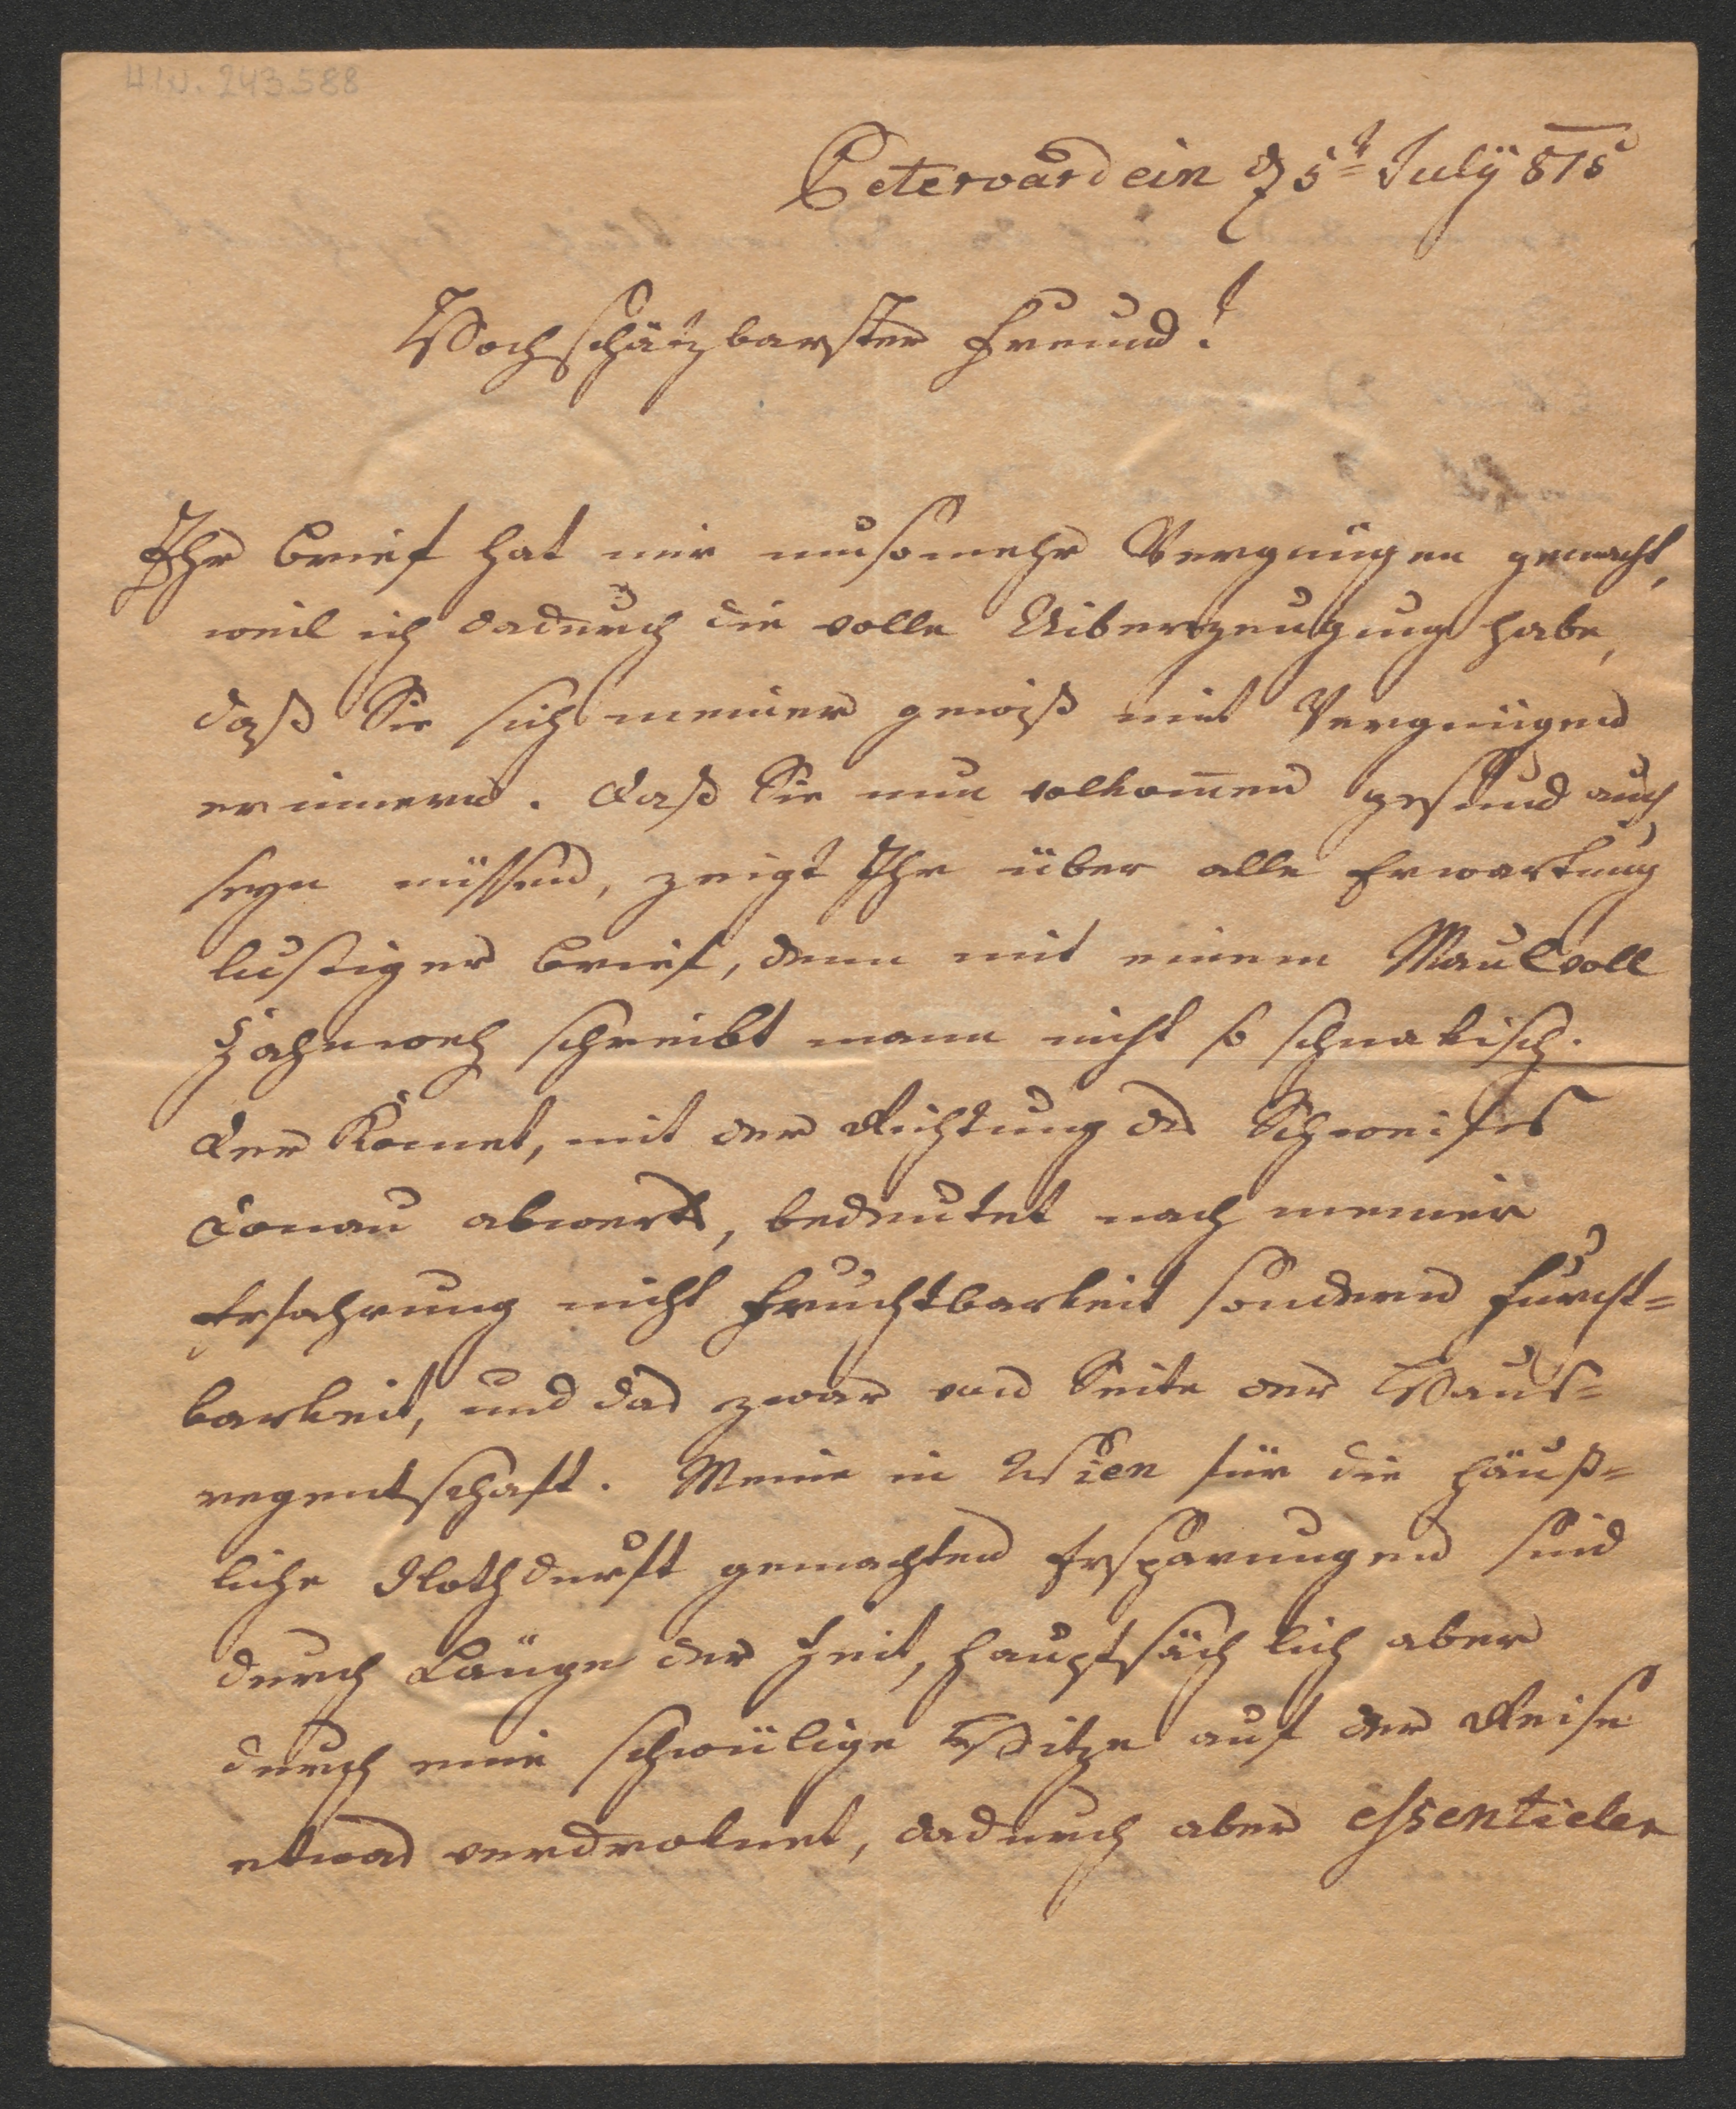 H.I.N. 243.588
Peterwardein d 5t July 815
Hochschätzbarster Freund!
Ihr Brief hat mir umsomehr Vergnügen gemacht,
weil ich dadurch die volle Uiberzeugung habe,
daß Sie sich meiner gewiß mit Vergnügen
erinnern. Daß Sie nun vollkom̅en gesund auch
seyn müssen, zeigt Ihr über alle Erwartung
lustiger Brief, denn mit einem Maul voll
Zahnweh schreibt mann nicht so schnakisch.
Der Komet, mit der Richtung des Schweifes
Donau abwerts, bedeutet nach meiner
Erfahrung nicht Fruchtbarkeit sondern Furcht=
barkeit, und das zwar von Seite der Haus=
regentschaft. Meine in Wien für die häuß=
liche Nothdurft gemachten Ersparungen sind
durch Länge der Zeit, hauptsächlich aber
durch eine schwülige Hitze auf der Reise
etwas verdroknet, dadurch aber essentieler